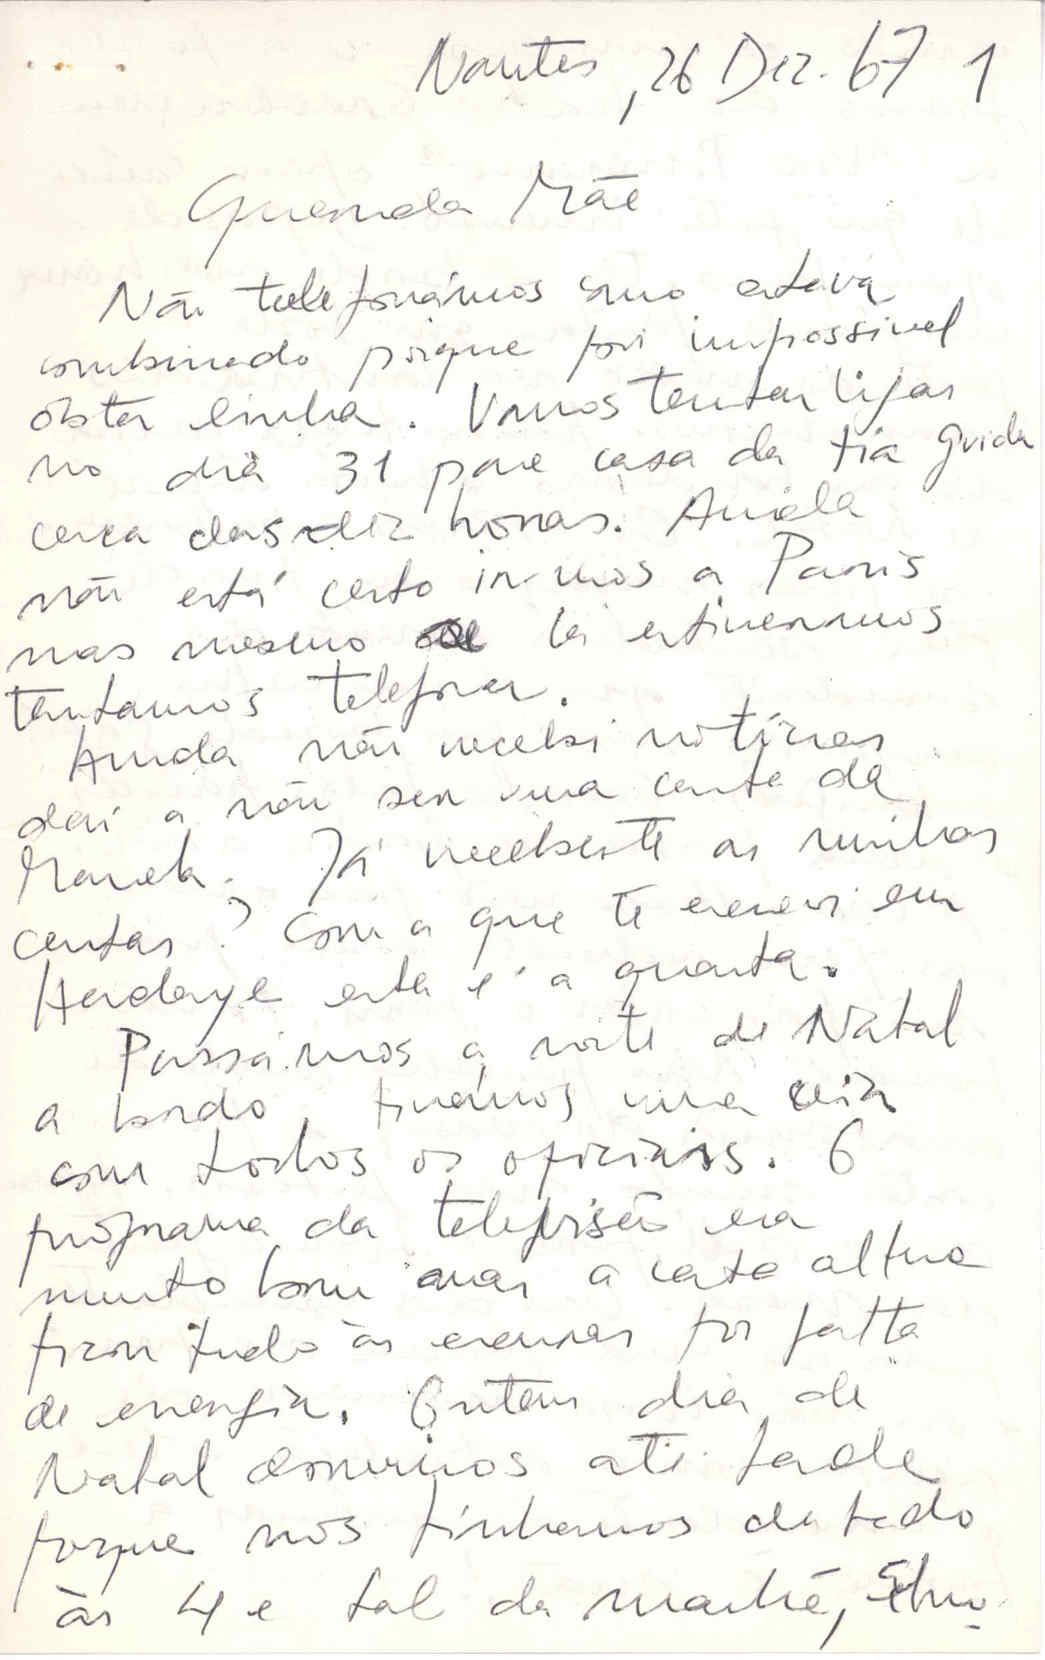 Nantes, 26 Dez. 67 1
Querida Mãe
Não telefonámos como estava
combinado porque foi impossivel
obter linha. Vamos tentar ligar
no dia 31 para casa da tia Guida
cerca das dez horas. Ainda
não está certo irmos a Paris
mas mesmo se lá estivermos
tentamos telefonar.
Ainda não recebi notícias
daí a não ser uma carta da
Manela. Já recebeste as minhas
cartas? Com a que te escrevi em
Hendaye esta é a quarta.
Passámos a noite de Natal
a bordo, fizémos uma ceia
com todos os oficiais. O
programa da televisão era
muito bom mas a certa altura
ficou tudo às escuras por falta
de energia. Ontem dia de
Natal dormimos até tarde
porque nos tinhamos deitado
às 4 e tal da manhã,